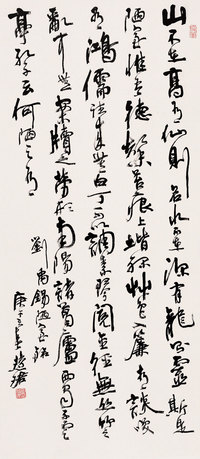 山不在高有仙則名水不在深有龍則靈斯是
陋室惟吾德馨苔痕上階綠草色入簾青談笑
有鴻儒往來無白丁可以調素琴閱金經無絲竹之
亂耳無案牘之勞形南陽諸葛廬西蜀子雲
亭孔子云何陋之有
劉禹錫陋室銘